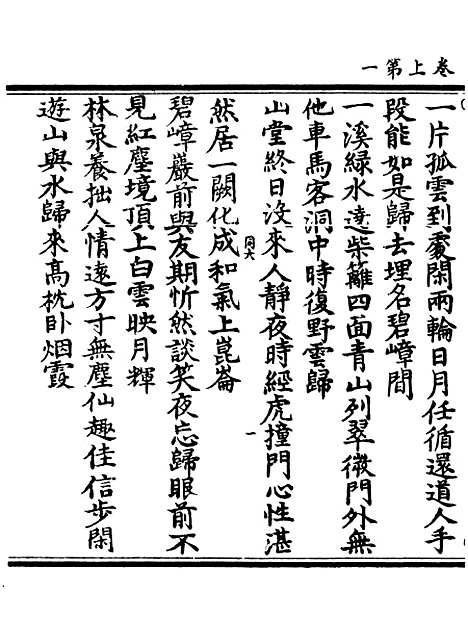 卷上第一
一片孤雲到處閑兩輪日月任循還道人手
段能如是歸去埋名碧嶂間
一溪綠水遶柴籬四面青山列翠微門外無
他車馬客洞中時復野雲歸
山堂終日沒來人靜夜時經虎撞門心性湛
然居一闕化成和氣上崑崙
碧嶂嚴前與友期忻然談笑夜忘歸眼前不
見紅塵境頂上白雲映月輝
林泉養拙人情遠方寸無塵仙趣佳信步閑
遊山與水歸來高枕卧烟霞